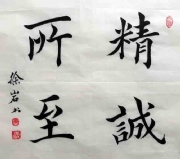 精誠
所至
徐岩松